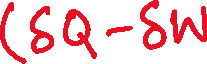 (δQ-δW